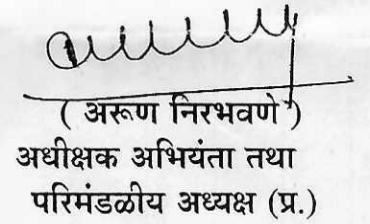 ( अरूण निरभवणे )
अधीक्षक अभियंता तथा
परिमंडळीय अध्यक्ष (प्र.)